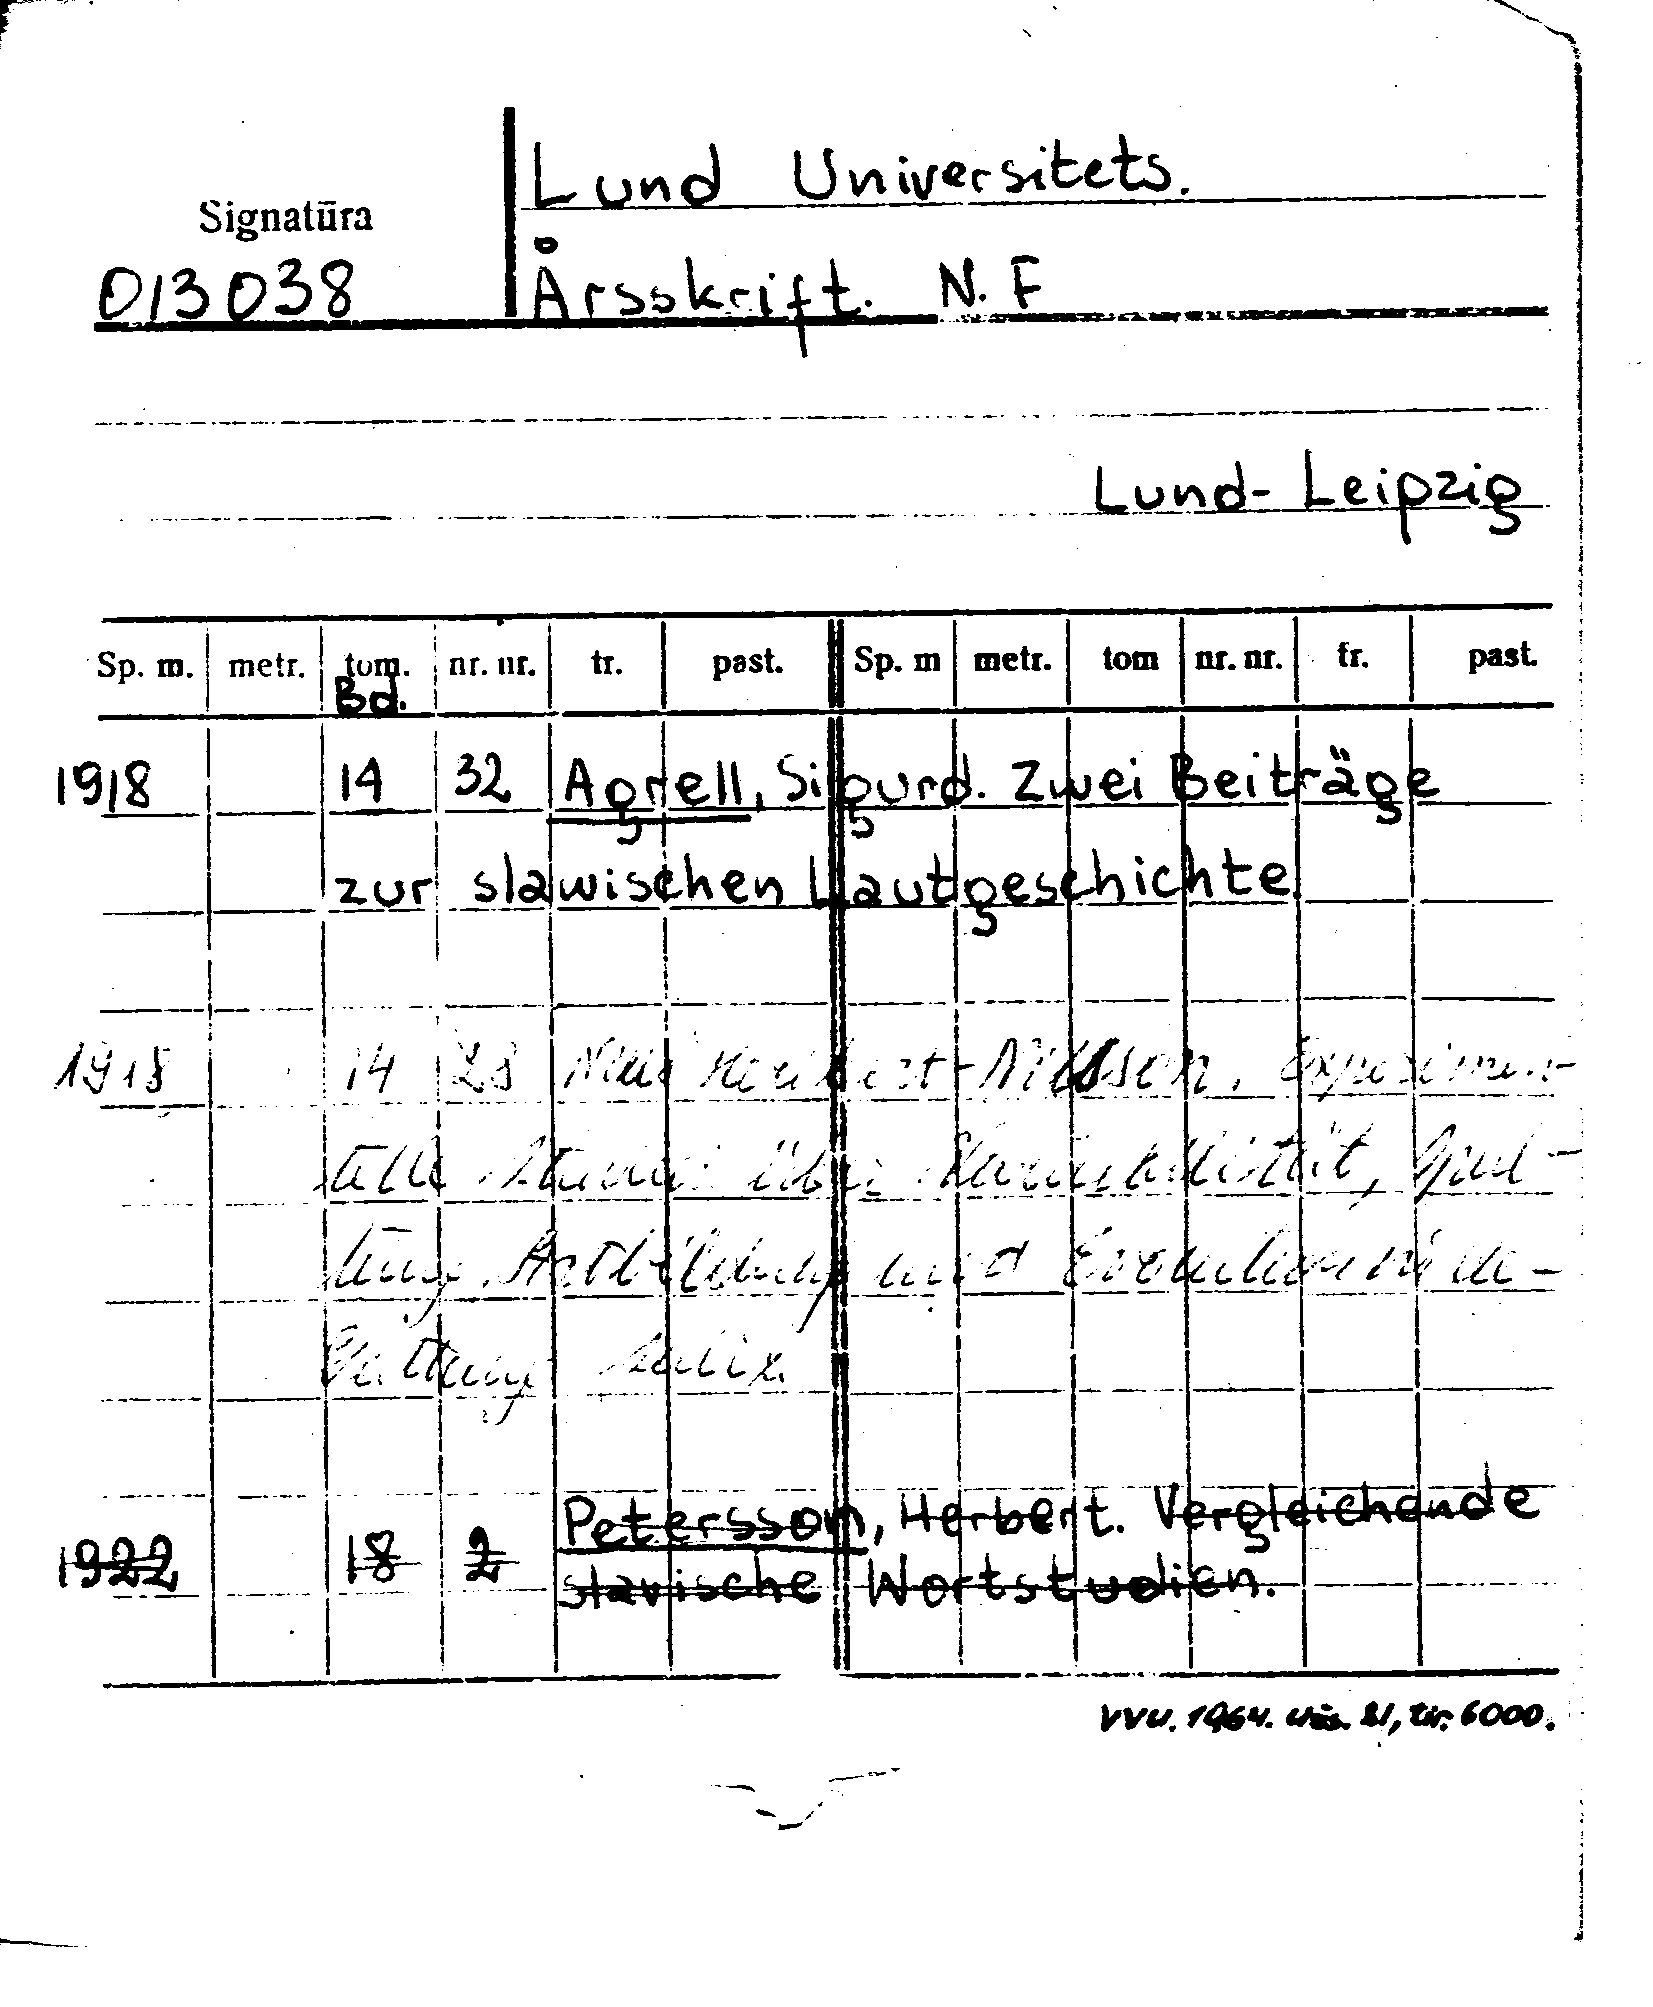 Lund Universitets.
Signatūra
013038
Årsskrift. N. F
Lund-Leipzig
Sp. m. metr. tom. nr. nr. tr. past. Sp. m metr. tom nr. nr. tr. past.
Bd.
1918 14 32 Agrell, Sigurd. Zwei Beiträge
zur slawischen Lautgeschichte.
1918 14 28 Heribert-Nilsson. Experimen-
telle Studien über Variabilität, Spal-
tung, Artbildung und Evolution in der
Gattung Salix.
Petersson, Herbert. Vergleichende
1922 18 2
slavische Wortstudien.
VVU. 1964. 21, tir. 6000.